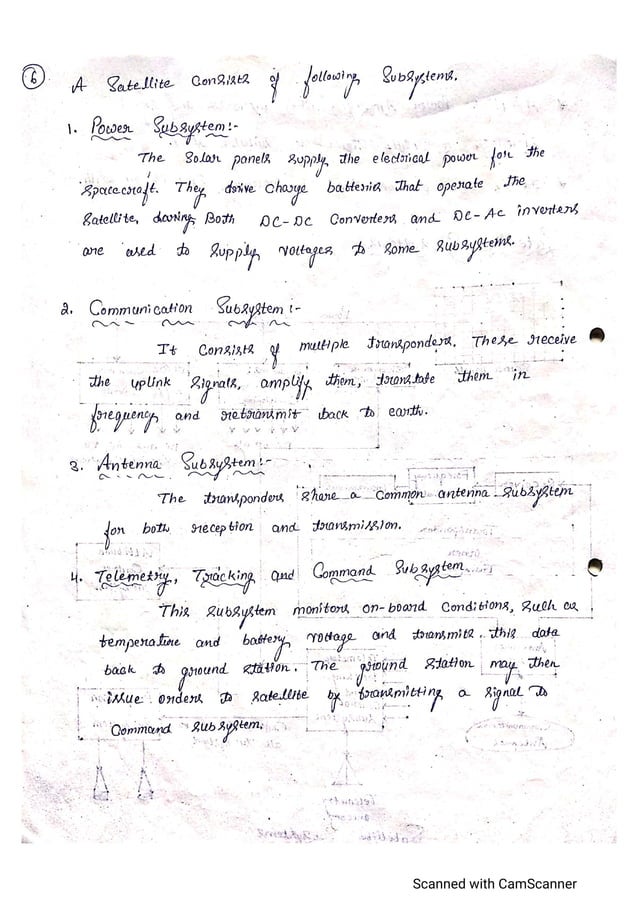 6
A Satellite Consists of following Subsystems.
1. Power Subsystem:-
The Solar panels supply the electrical power for the
spacecraft. They drive charge batteries that operate the
Satellite, during Both DC-DC Converters and DC-AC inverters
are used to supply voltages to some subsystems.
2. Communication Subsystem:-
It consists of multiple transponders. These receive
the uplink signals, amplify them, translate them in
frequency and retransmit back to earth.
3. Antenna Subsystem:-
The transponders share a common antenna subsystem
for both reception and transmission.
4. Telemetry, Tracking and Command Subsystem
This subsystem monitors on-board Conditions, such as
temperature and battery voltage and transmits this data
back to ground station. The ground station may then
issue orders to satellite by transmitting a signal to
Command subsystem.
Scanned with CamScanner